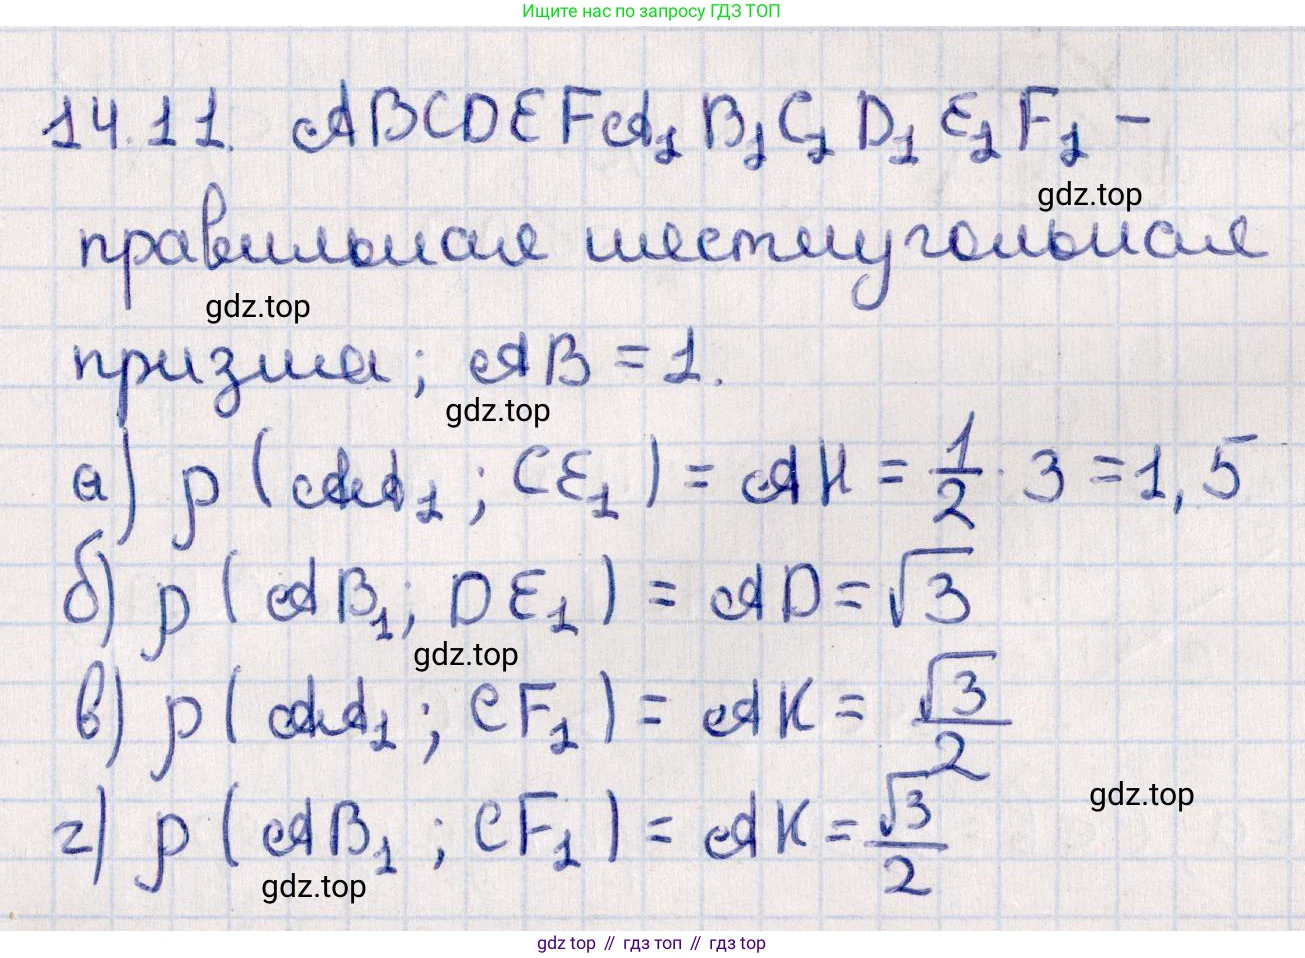 Ищите нас по запросу ГДЗ ТОП
14.11. ABCDEFA₁B₁C₁D₁E₁F₁ –
gdz.top
правильная шестиугольная
gdz.top
призма; AB = 1.
gdz.top
а) ρ (AA₁; CE₁) = AH = 1/2 · 3 = 1,5
б) ρ (AB₁; DE₁) = AD = √3
gdz.top
в) ρ (AA₁; CF₁) = AK = √3/2
gdz.top
г) ρ (AB₁; CF₁) = AK = √3/2
gdz.top
gdz top // гдз топ // гдз top